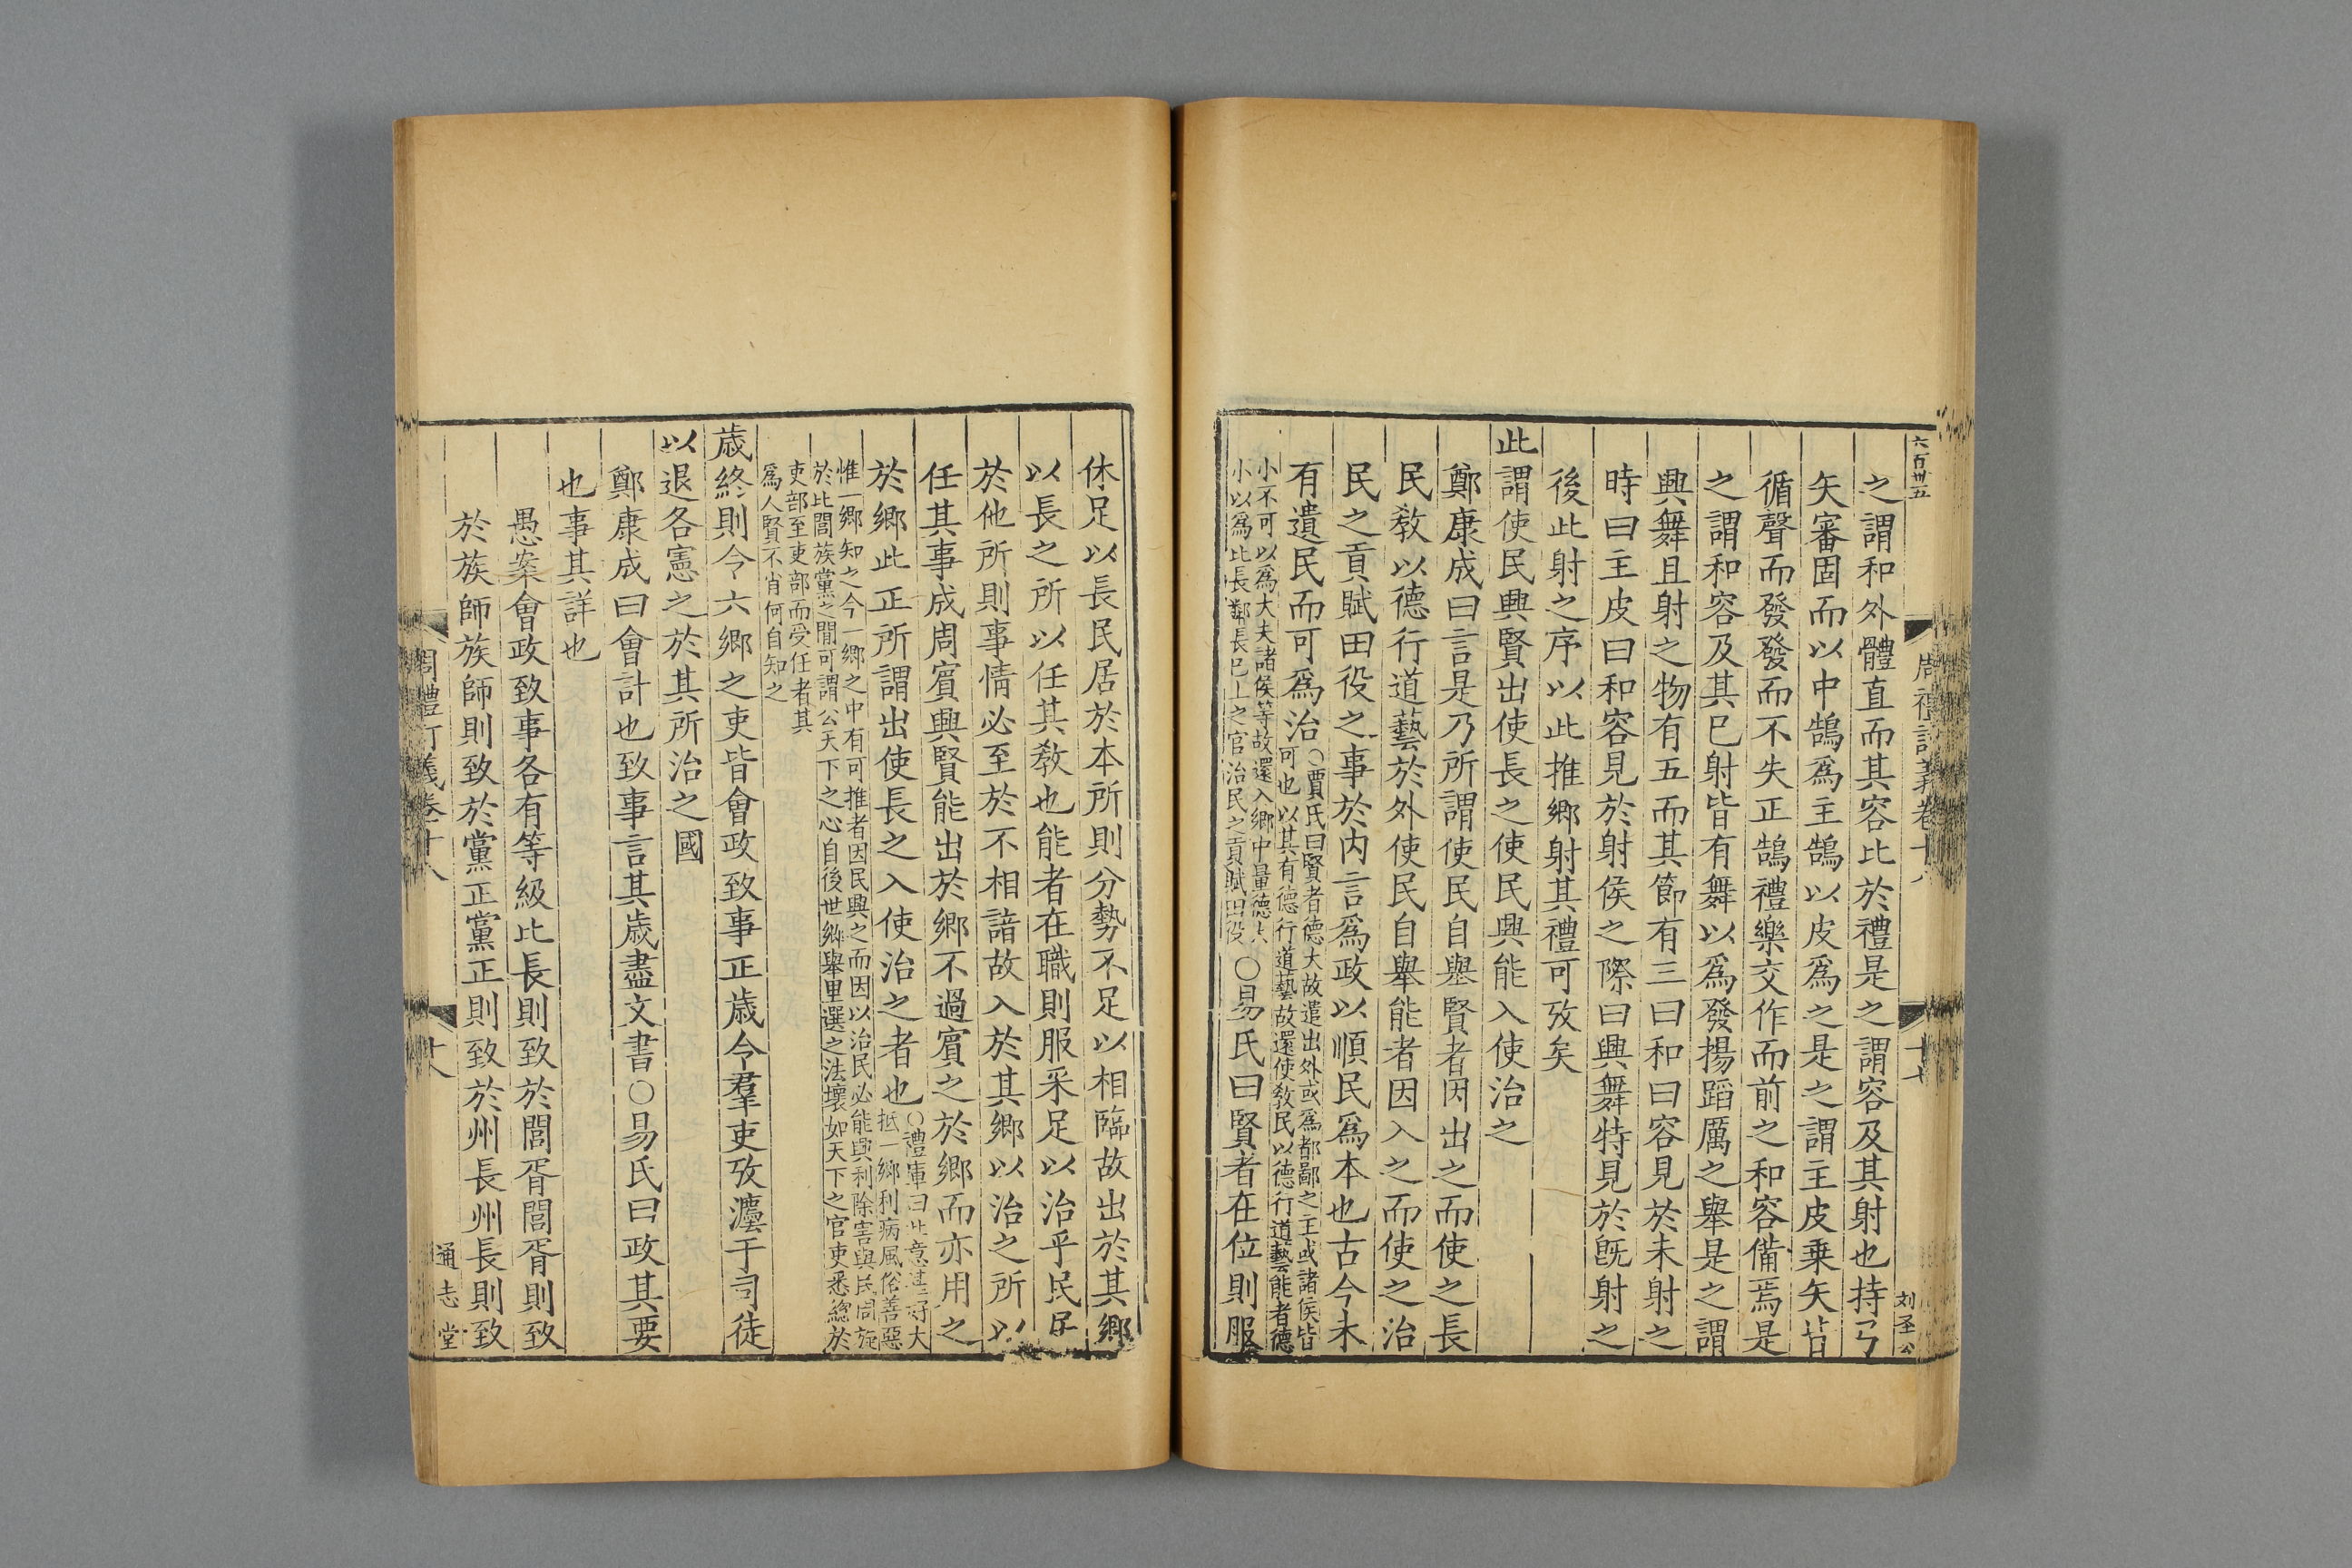 六百卅五
周禮訂義卷十八
十七
刘圣公
之謂和外體直而其容比於禮是之謂容及其射也持弓
矢審固而以中鵠爲主鵠以皮爲之是之謂主皮乗矢皆
循聲而發發而不失正鵠禮樂交作而前之和容備焉是
之謂和容及其巳射皆有舞以爲發揚蹈厲之舉是之謂
興舞且射之物有五而其節有三曰和曰容見於未射之
時曰主皮曰和容見於射侯之際曰興舞特見於旣射之
後此射之序以此推鄉射其禮可攷矣
此謂使民興賢出使長之使民興能入使治之
鄭康成曰言是乃所謂使民自舉賢者因出之而使之長
民敎以德行道藝於外使民自舉能者因入之而使之治
民之貢賦田役之事於内言爲政以順民爲本也古今未
有遺民而可爲治
○賈氏曰賢者德大故遣出外或爲都鄙之主或諸侯皆
可也以其有德行道藝故還使敎民以德行道藝能者德
小不可以爲大夫諸侯等故還入鄉中量德
小以爲比長鄰長巳上之官治民之貢賦田役
○易氏曰賢者在位則服
休足以長民居於本所則分勢不足以相臨故出於其鄉
以長之所以任其敎也能者在職則服采足以治乎民居
於他所則事情必至於不相諳故入於其鄉以治之所以
任其事成周賓興賢能出於鄉不過賓之於鄉而亦用之
於鄉此正所謂出使長之入使治之者也
○禮庫曰此意甚好大
抵一鄉利病風俗善惡
惟一鄉知之今一鄉之中有可推者因民興之而因以治民必能興利除害與民同旋
於比閭族黨之閒可謂公天下之心自後世鄉舉里選之法壞如天下之官吏悉總於
吏部至吏部而受任者其
爲人賢不肖何自知之
歳終則令六鄉之吏皆會政致事正歳令羣吏攷灋于司徒
以退各憲之於其所治之國
鄭康成曰會計也致事言其歳盡文書○易氏曰政其要
也事其詳也
愚案會政致事各有等級比長則致於閭胥閭胥則致
於族師族師則致於黨正黨正則致於州長州長則致
周禮訂義卷十八
十八
通志堂